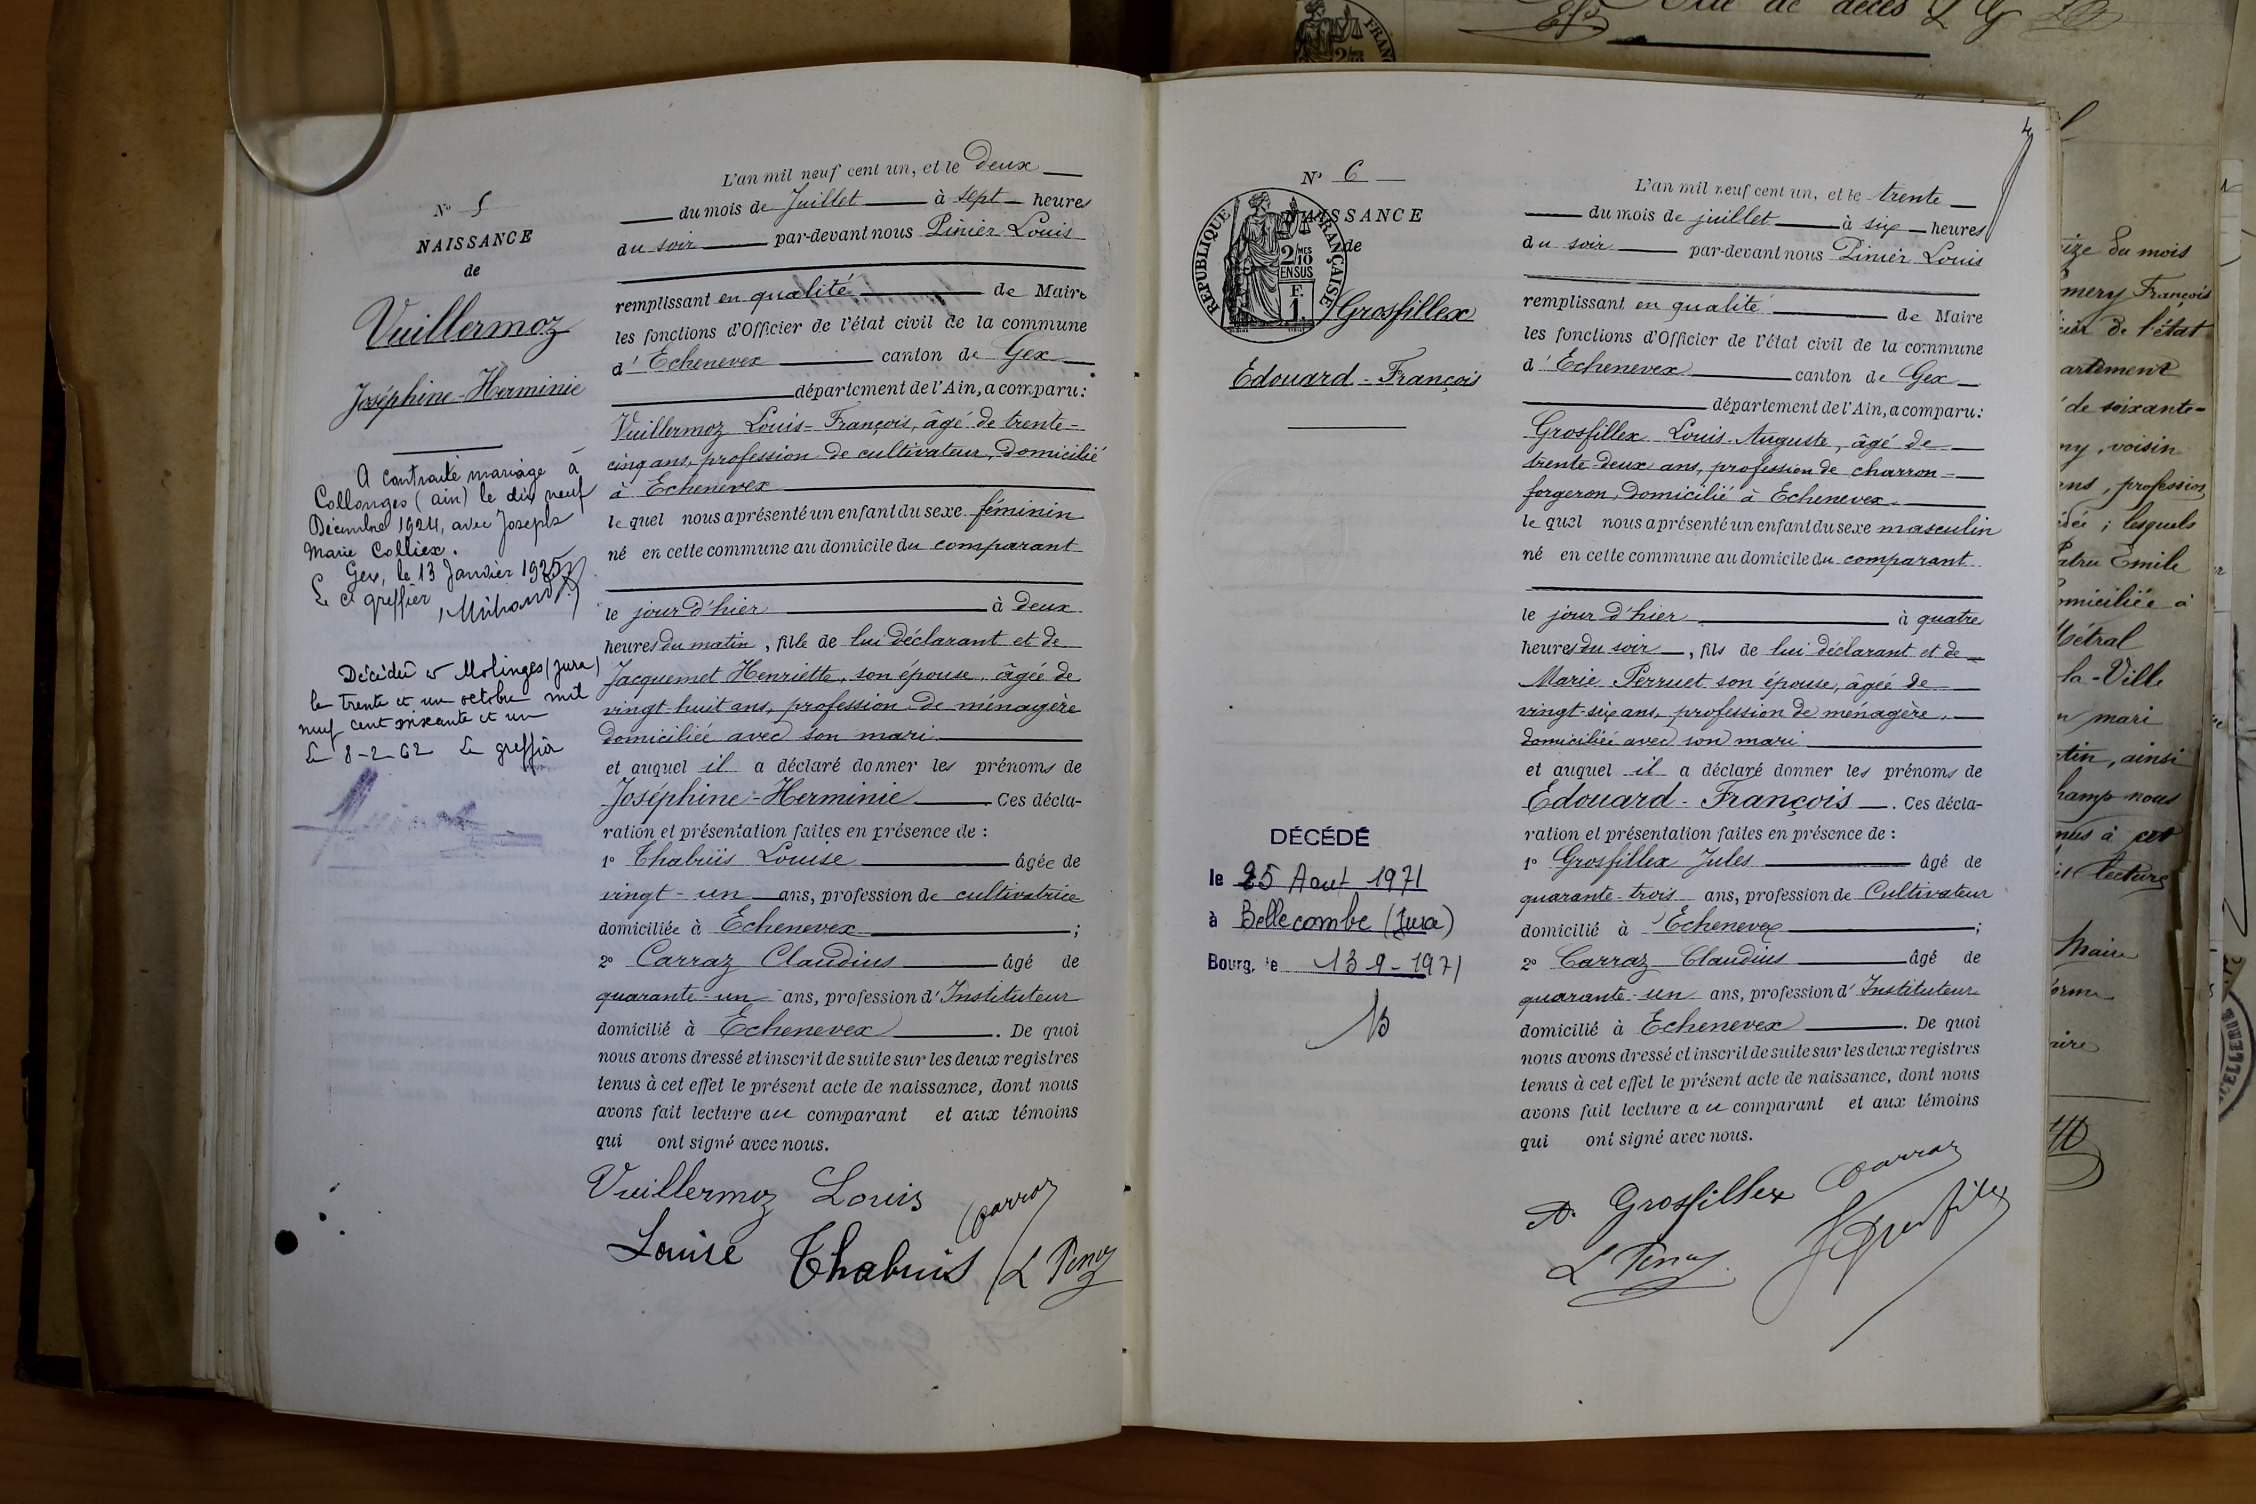 N° 5
NAISSANCE
de
Vuillermoz
Joséphine-Herminie
A contracté mariage à
Collonges (ain) le dix neuf
Décembre 1924, avec Joseph
Marie Colliex.
Gex, le 13 Janvier 1925
Le greffier
Décédée à Molinges (Jura)
le trente et un octobre mil
neuf cent soixante et un
Le 8-2-62 Le greffier
L'an mil neuf cent un, et le Deux
du mois de Juillet à sept heures
du soir par-devant nous Pinier Louis
remplissant en qualité de Maire
les fonctions d'Officier de l'état civil de la commune
d'Echenevex canton de Gex
département de l'Ain, a comparu:
Vuillermoz Louis-François, âgé de trente-
cinq ans, profession de cultivateur, domicilié
à Echenevex
le quel nous a présenté un enfant du sexe féminin
né en cette commune au domicile du comparant
le jour d'hier à deux
heures du matin, fille de lui déclarant et de
Jacquemet Henriette, son épouse, âgée de
vingt-huit ans, profession de ménagère
domiciliée avec son mari
et auquel il a déclaré donner les prénoms de
Joséphine-Herminie Ces décla-
ration et présentation faites en présence de :
1° Thabuis Louise âgée de
vingt-un ans, profession de cultivatrice
domiciliée à Echenevex ;
2° Carraz Claudius âgé de
quarante-un ans, profession d'Instituteur
domicilié à Echenevex . De quoi
nous avons dressé et inscrit de suite sur les deux registres
tenus à cet effet le présent acte de naissance, dont nous
avons fait lecture au comparant et aux témoins
qui ont signé avec nous.
Vuillermoz Louis Carraz
Louise Thabuis
N° 6
NAISSANCE
de
RÉPUBLIQUE FRANÇAISE
2/10 MES
EN SUS
F.
1.
Grosfillex
Edouard-François
DÉCÉDÉ
le 25 Aout 1971
à Bellecombe (Jura)
Bourg, le 13-9-1971
4
L'an mil neuf cent un, et le trente
du mois de juillet à six heures
du soir par-devant nous Pinier Louis
remplissant en qualité de Maire
les fonctions d'Officier de l'état civil de la commune
d'Echenevex canton de Gex
département de l'Ain, a comparu:
Grosfillex Louis-Auguste, âgé de
trente-deux ans, profession de charron-
forgeron, domicilié à Echenevex
le quel nous a présenté un enfant du sexe masculin
né en cette commune au domicile du comparant
le jour d'hier à quatre
heures du soir, fils de lui déclarant et de
Marie Perruet son épouse, âgée de
vingt-six ans, profession de ménagère,
domiciliée avec son mari
et auquel il a déclaré donner les prénoms de
Edouard-François . Ces décla-
ration et présentation faites en présence de :
1° Grosfillex Jules âgé de
quarante-trois ans, profession de Cultivateur
domicilié à Echenevex ;
2° Carraz Claudius âgé de
quarante-un ans, profession d'Instituteur
domicilié à Echenevex . De quoi
nous avons dressé et inscrit de suite sur les deux registres
tenus à cet effet le présent acte de naissance, dont nous
avons fait lecture au comparant et aux témoins
qui ont signé avec nous.
A. Grosfillex Carraz
de décès
du mois
François
de l'état
de soixante-
voisin
profession
lesquels
Emile
domiciliée à
Métral
la-Ville
mari
ainsi
nous
à cet
lecture
Maire